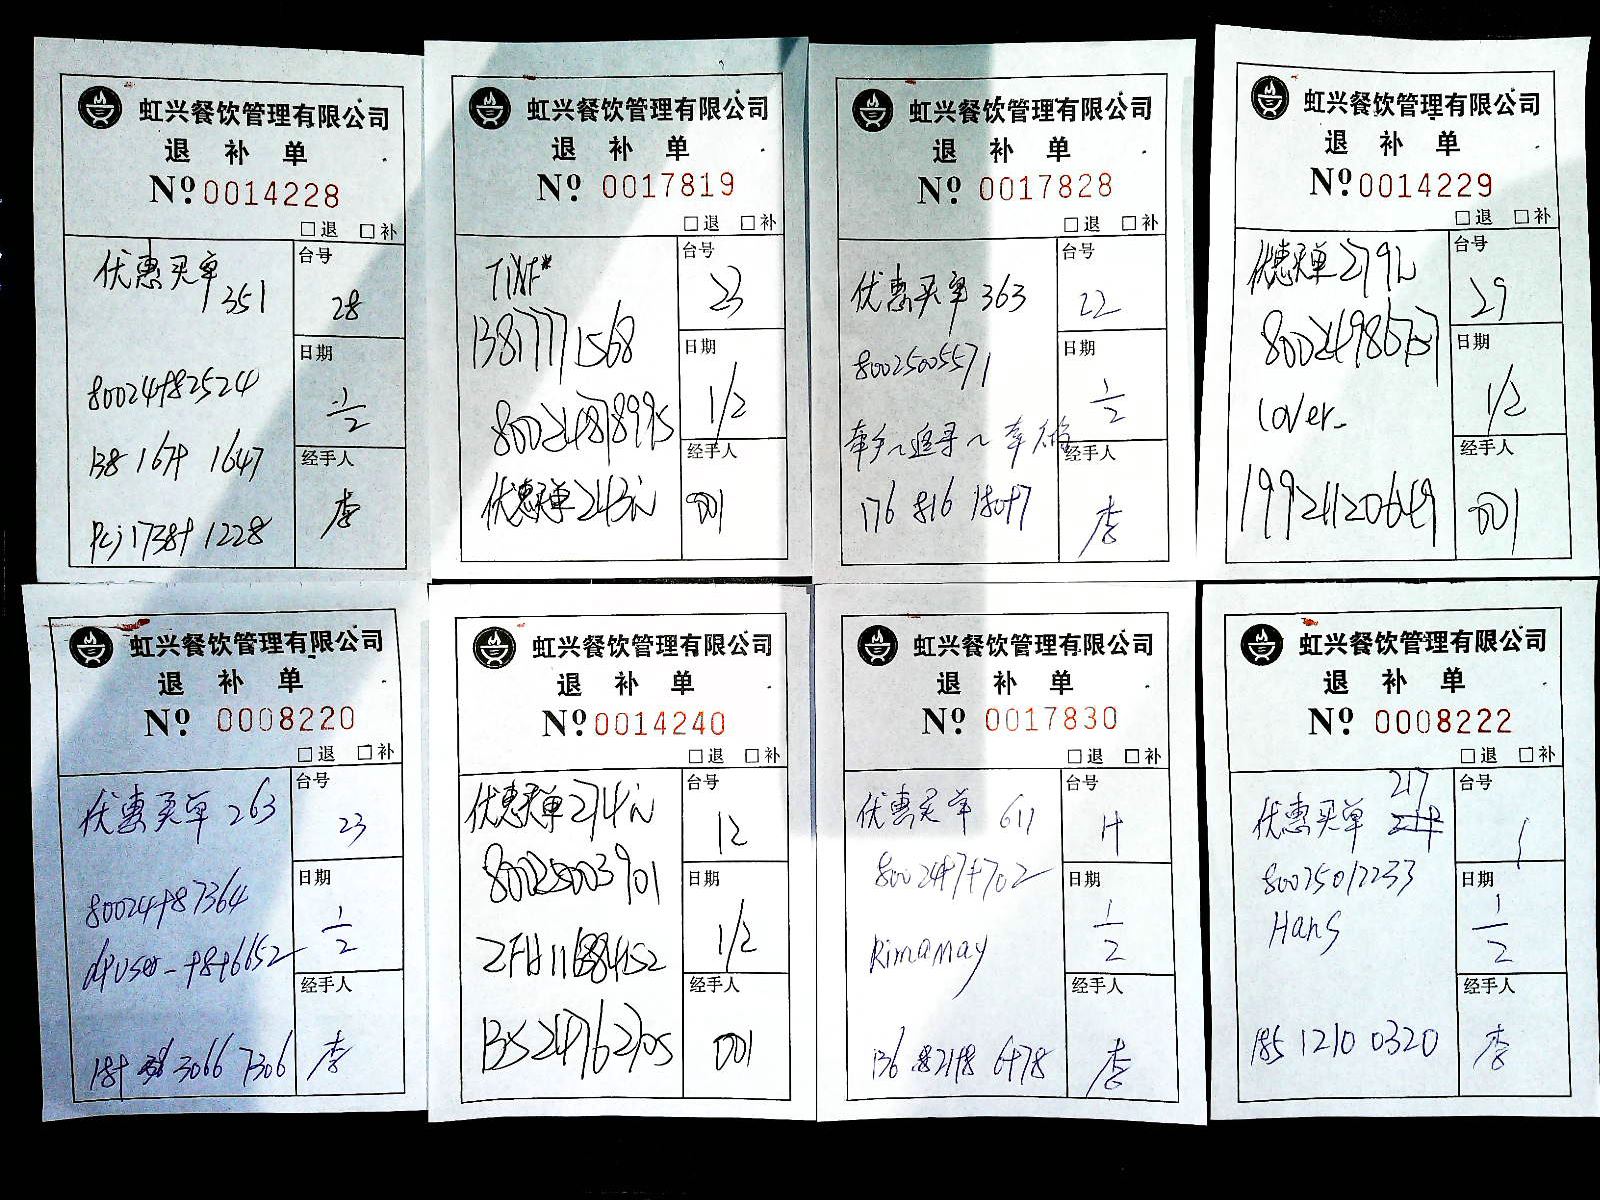 虹兴餐饮管理有限公司
退 补 单
Nº 0014228
□退 □补
优惠买单
351
台号
28
日期
1/2
经手人
李
虹兴餐饮管理有限公司
退 补 单
Nº 0017819
□退 □补
13817771568
优惠买单243元
台号
23
日期
1/2
经手人
001
虹兴餐饮管理有限公司
退 补 单
Nº 0017828
□退 □补
优惠买单 363
80025005571
台号
22
日期
1/2
经手人
李
虹兴餐饮管理有限公司
退 补 单
Nº 0014229
□退 □补
优惠买单279元
lover
台号
29
日期
1/2
经手人
001
虹兴餐饮管理有限公司
退 补 单
Nº 0008220
□退 □补
优惠买单 263
台号
23
日期
1/2
经手人
李
虹兴餐饮管理有限公司
退 补 单
Nº 0014240
□退 □补
优惠买单274元
80025003901
台号
12
日期
1/2
经手人
001
虹兴餐饮管理有限公司
退 补 单
Nº 0017830
□退 □补
优惠买单 611
Rimamay
台号
日期
1/2
经手人
李
虹兴餐饮管理有限公司
退 补 单
Nº 0008222
□退 □补
优惠买单 217
80025012233
Hans
185 1210 0320
台号
1
日期
1/2
经手人
李